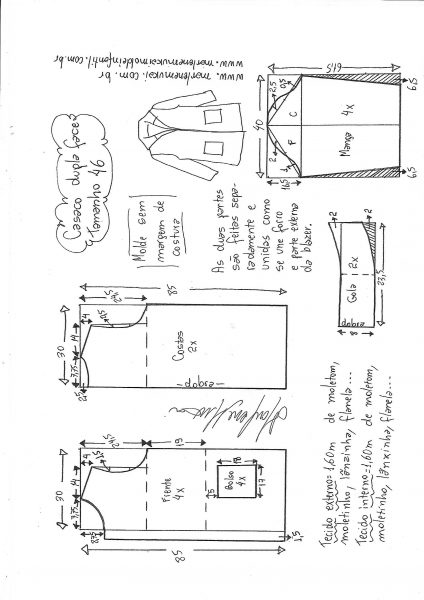 www.marlenemukaimoldeinfantil.com.br
www.marlenemukai.com.br
Casaco dupla face
tamanho 46
Molde sem
margem de
costura
As duas partes
são feitas sepa-
radamente e
unidas como
se une forro
e parte externa
da blazer.
61,5
6,5
6,5
40
2,5
0,5
C
F
4x
Manga
2
1
16,5
2
2
Gola
2x
23,5
dobra
8
85
24,5
4
0,5
30
14
7,75
2,5
Costas
2x
dobra
24,5
19
4
1,5
30
14
7,75
8,75
Frente
4x
18
Bolso
4x
17
15
85
1,5
Tecido externo=1,60m de moletom,
moletinho, lãnzinha, flanela...
Tecido interno=1,60m de moletom,
moletinho, lãnxinha, flanela...